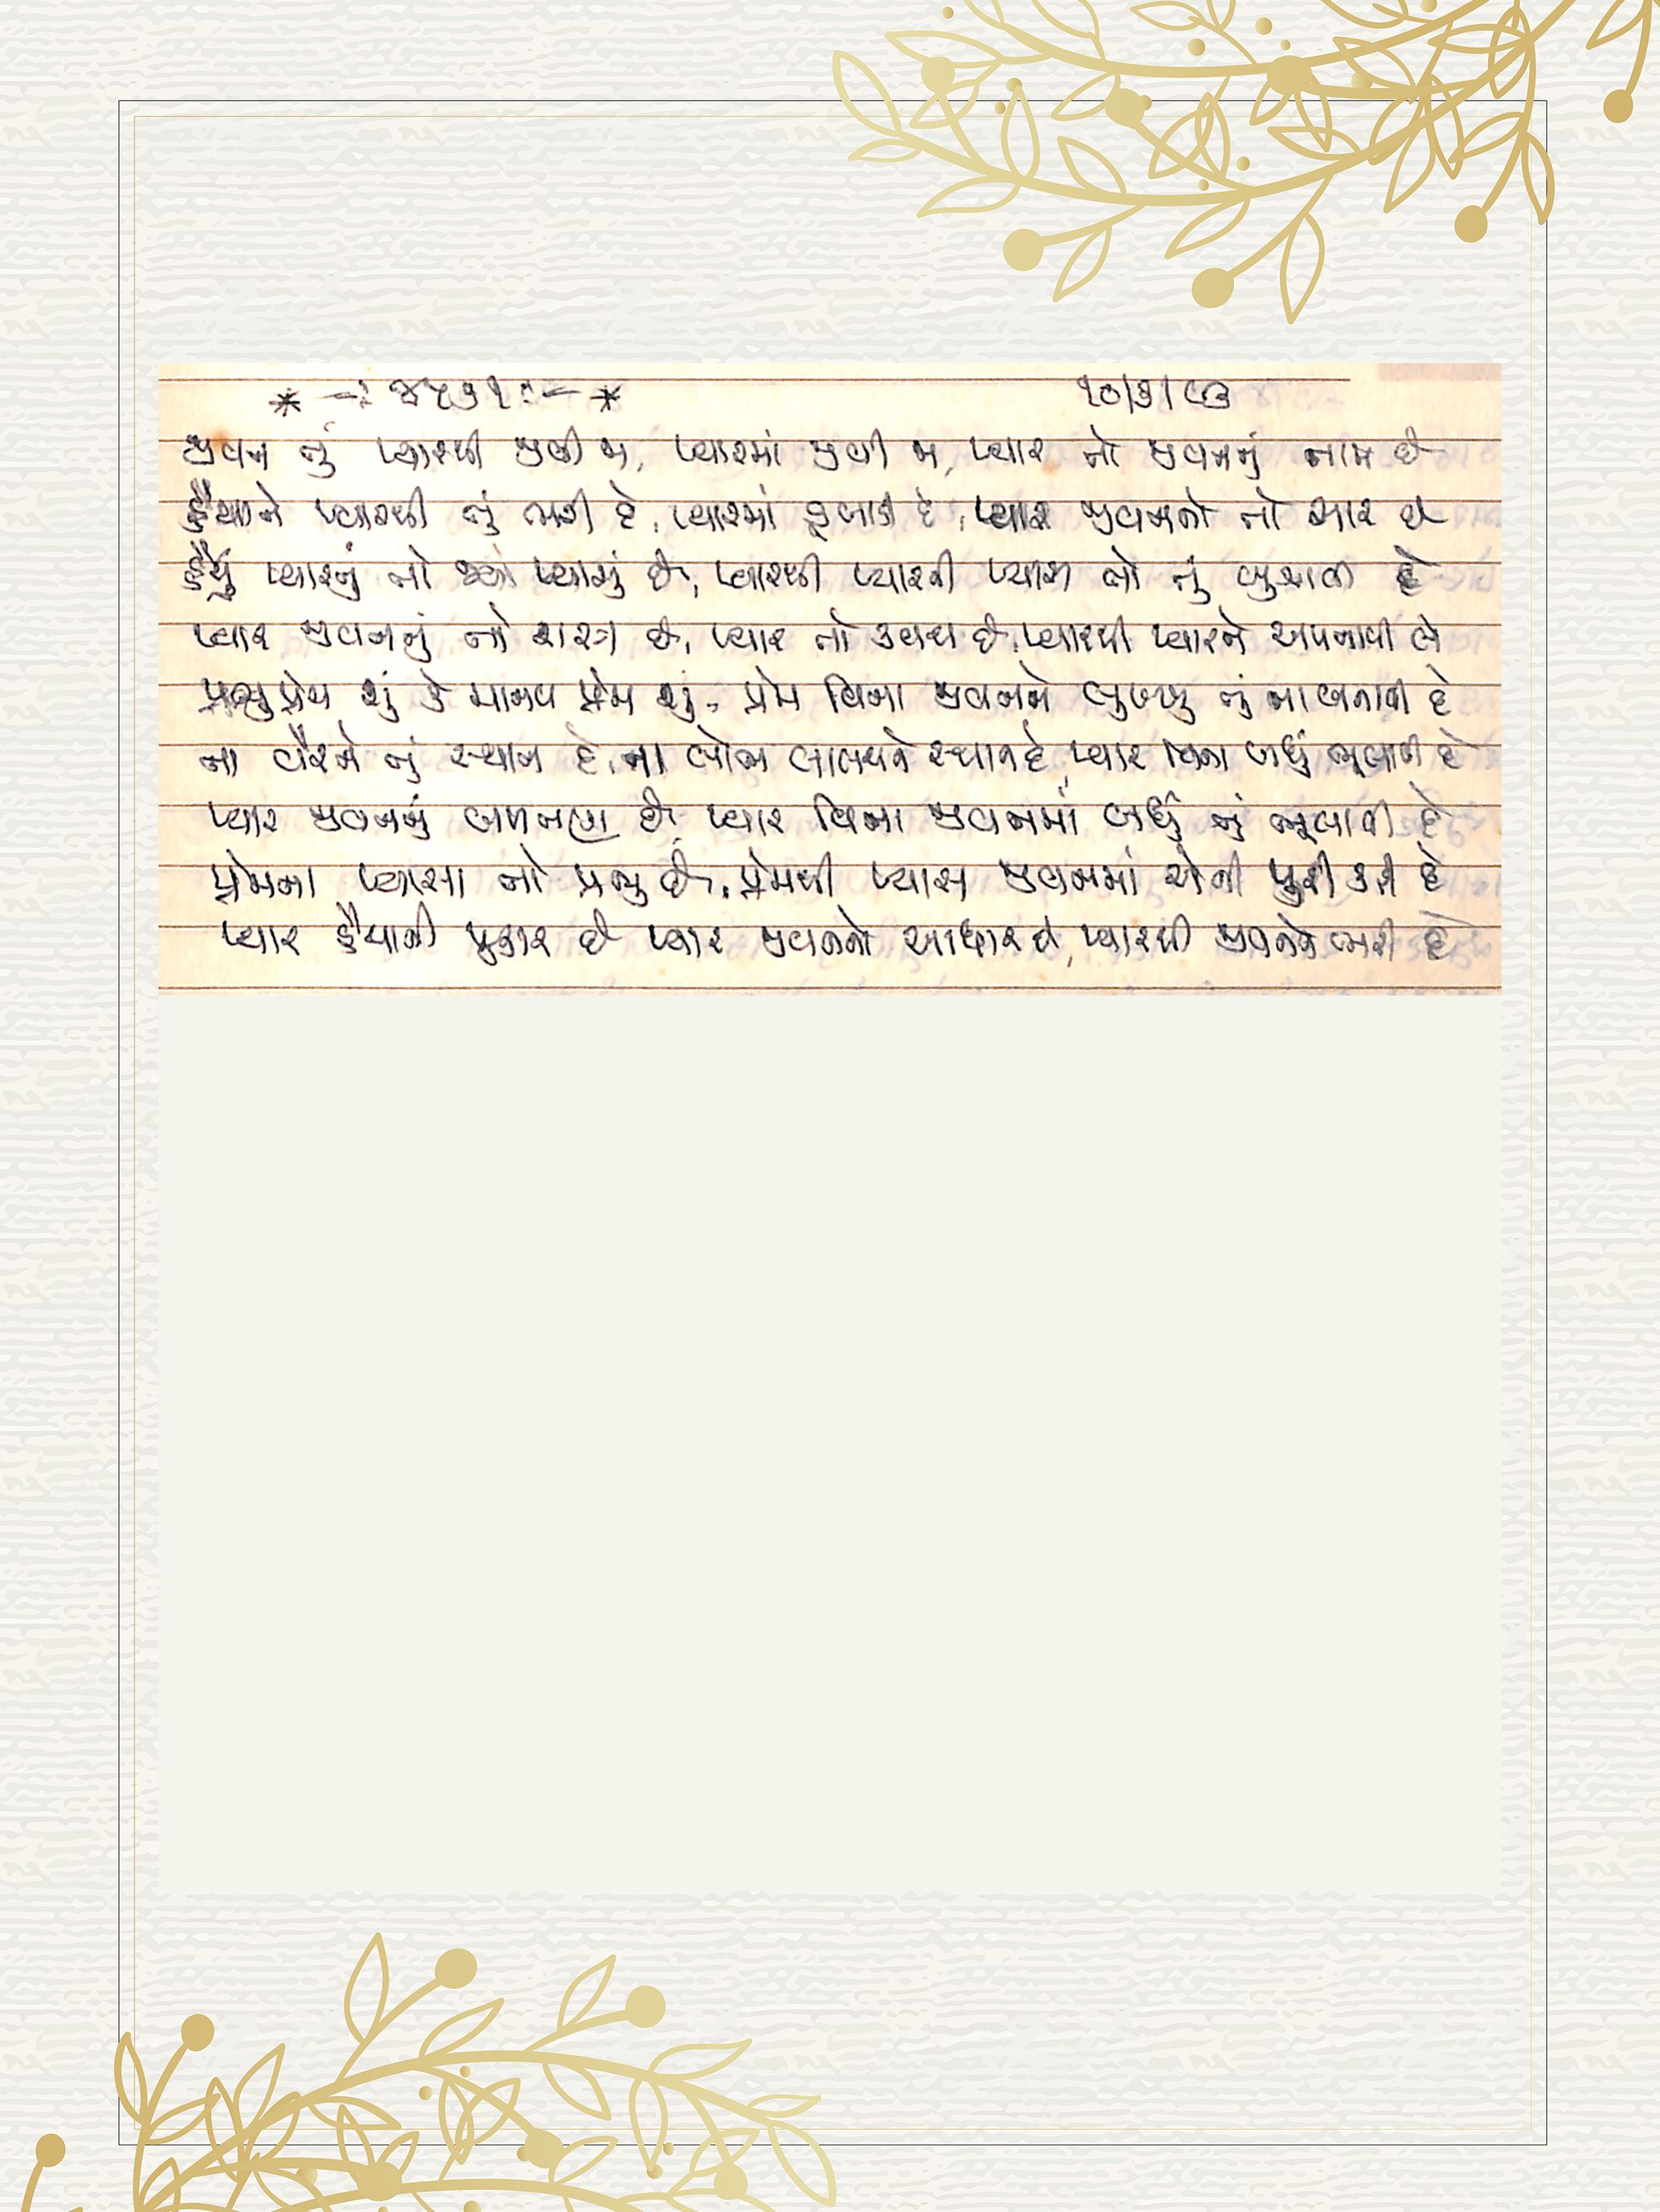 * -: ૪૫૭૧ :- * ૧૦/૩/૯૩
જીવન તું પ્યારથી જીવી જા, પ્યારમાં જીવી જા, પ્યાર તો જીવનનું નામ છે
હૈયાને પ્યારથી તું ભરી દે, પ્યારમાં ડુબાડી દે, પ્યાર જીવનનો તો સાર છે
હૈયું પ્યારનું તો જ્યાં પ્યાસું છે, પ્યારથી પ્યારની પ્યાસ તો તું બુઝાવી દે
પ્યાર જીવનનું તો શસ્ત્ર છે, પ્યાર તો કવચ છે, પ્યારથી પ્યારને અપનાવી લે
પ્રભુપ્રેમ શું કે માનવ પ્રેમ શું, પ્રેમ વિના જીવનને લુખ્ખુ તું ના બનાવી દે
ના વૈરને તું સ્થાન દે, ના લોભ લાલચને સ્થાન દે, પ્યાર વિના બધું ભૂલાવી દે
પ્યાર જીવનનું બળ છે, પ્યાર વિના જીવનમાં બધું તું ભૂલાવી દે
પ્રેમના પ્યાસા તો પ્રભુ છે, પ્રેમથી પ્યાસ જીવનમાં એની પુરી કરી દે
પ્યાર હૈયાની પુકાર છે પ્યાર જીવનનો આધાર છે, પ્યારથી જીવનને ભરી દે